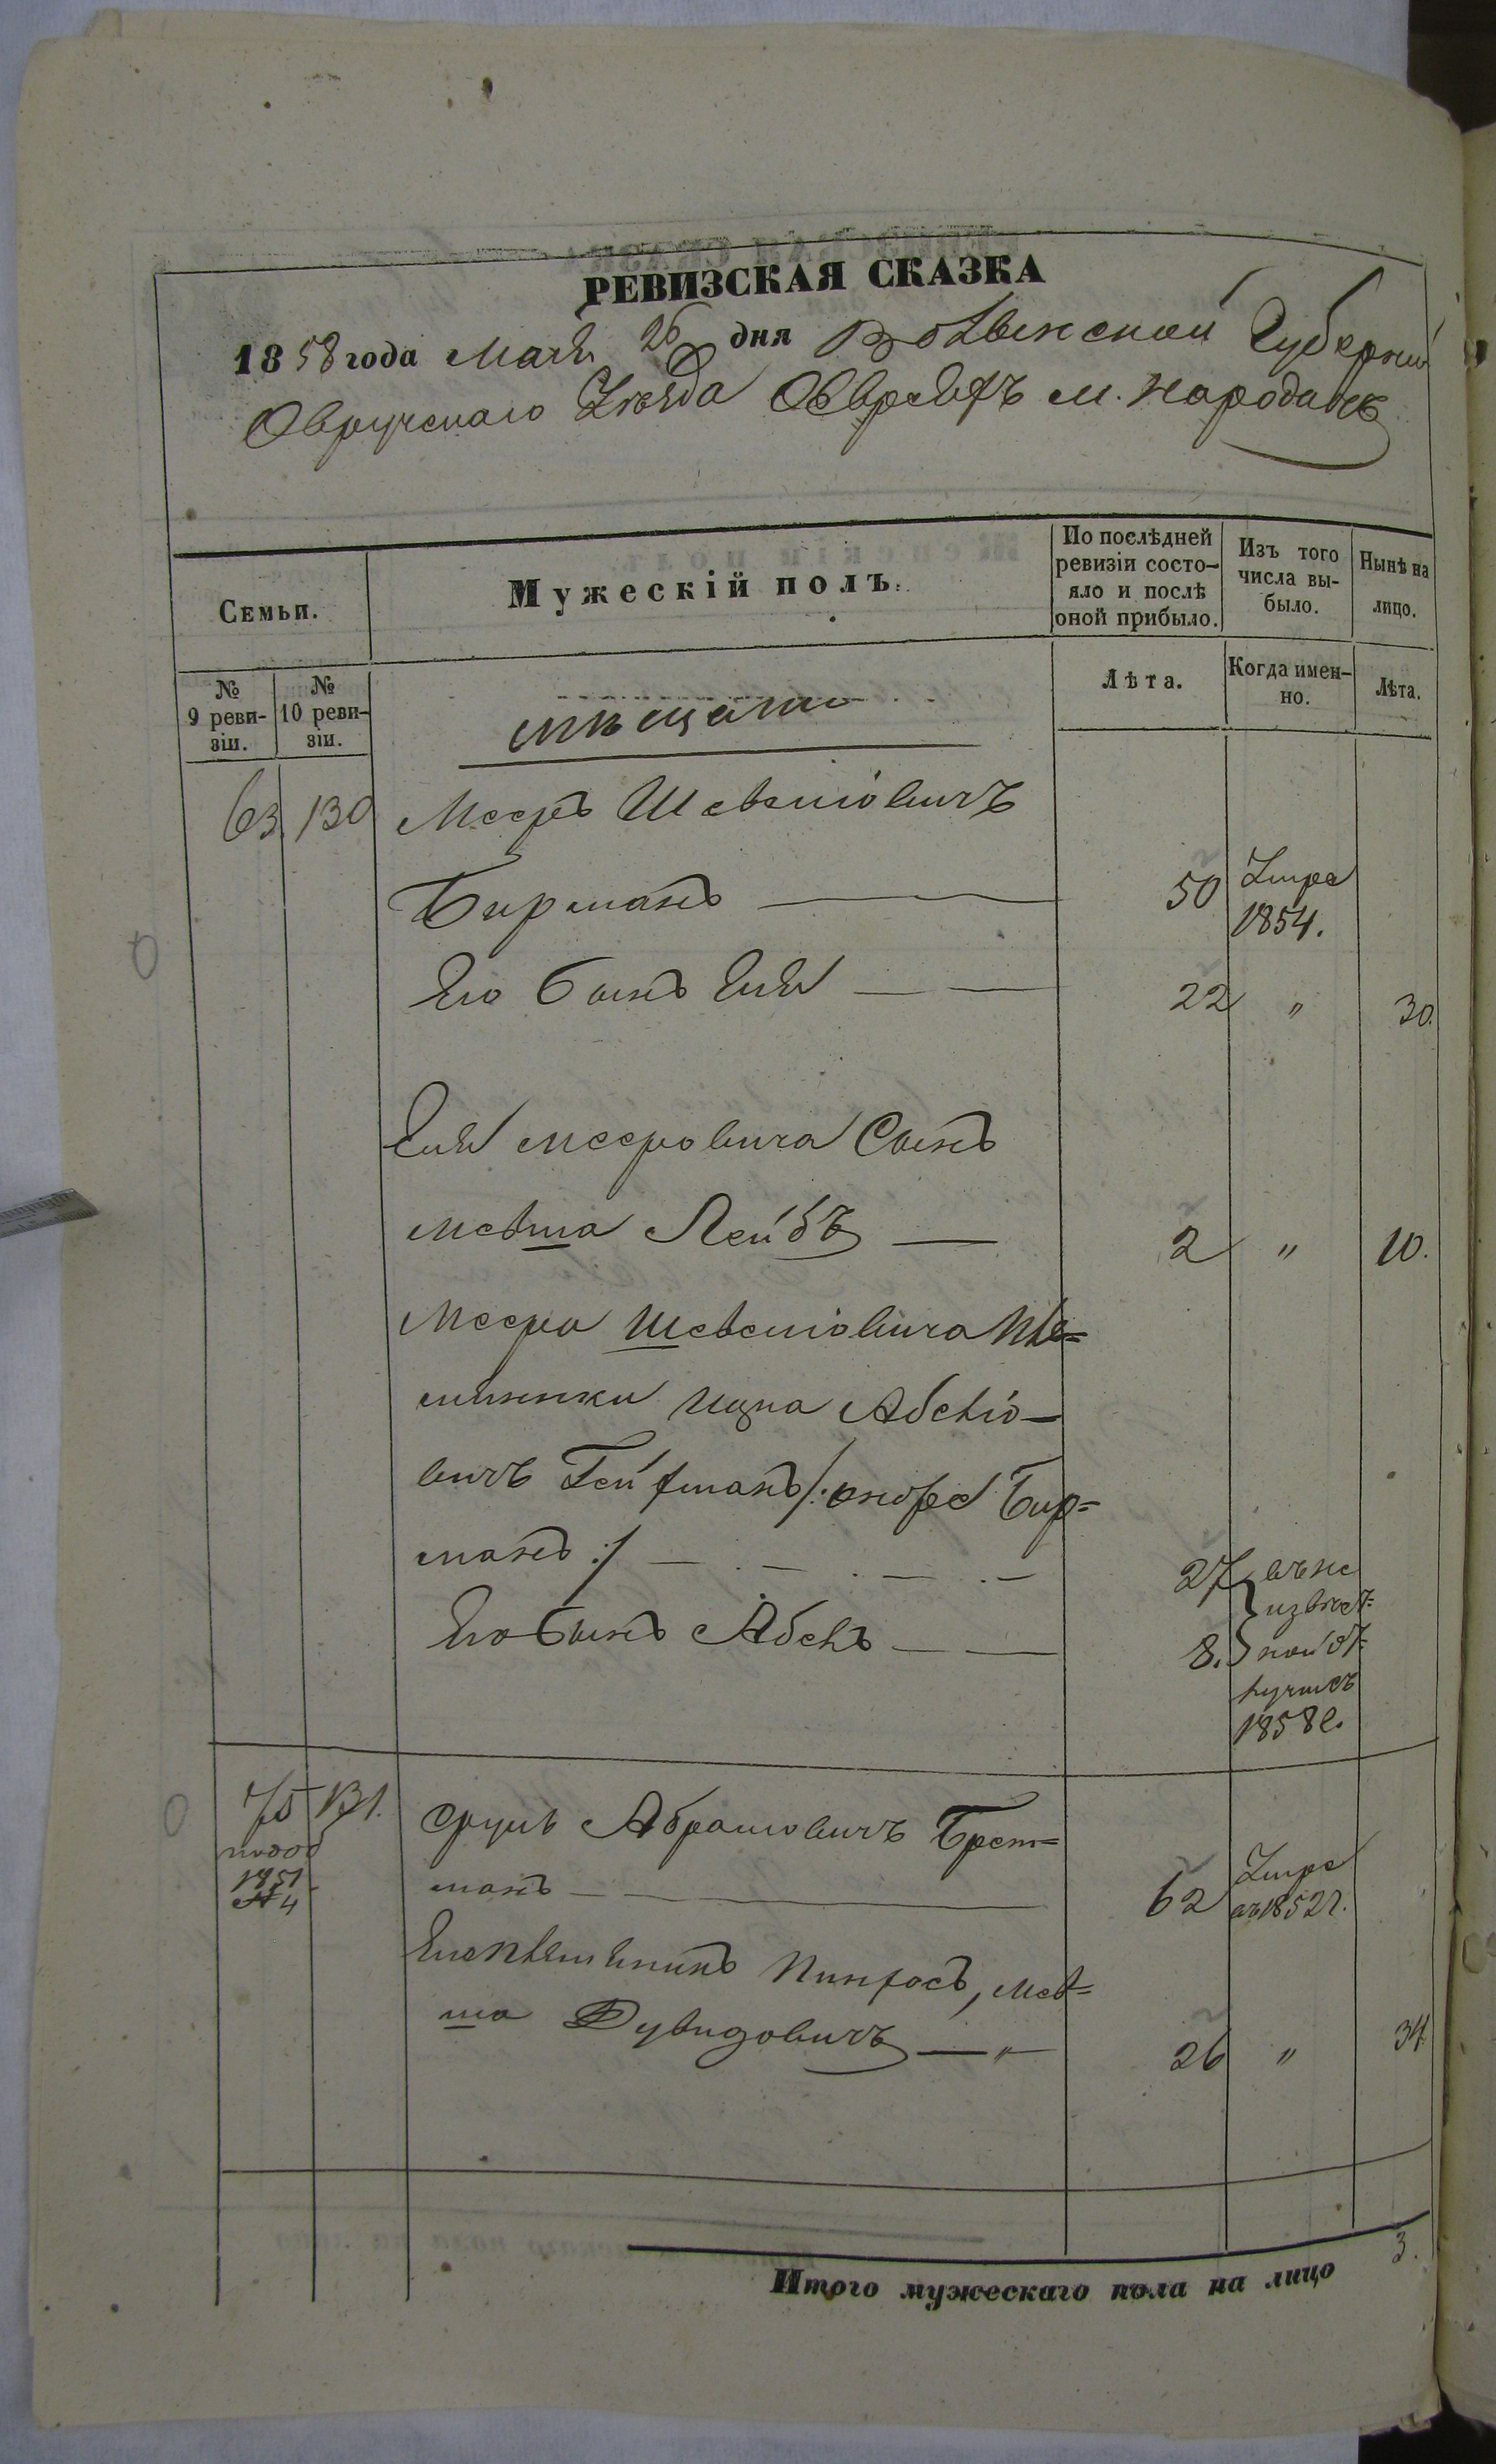 РЕВИЗСКАЯ СКАЗКА
1858 года Мая 26 дня Волынской Губернии
Овручскаго Уезда Овреевъ м. Народичъ
Семьи.
Мужескій полъ.
По послѣдней ревизіи состо-
яло и послѣ оной прибыло.
Изъ того числа вы-
было.
Нынѣ на лицо.
№ 9 реви-
зіи.
№ 10 реви-
зіи.
Лѣта.
Когда имен-
но.
Лѣта.
мѣщане
63 130 Мееръ Шевелiовичъ
Бирманъ 50 Умре 1854.
Его Сынъ Еля 22 " 30.
Еля Мееровича Сынъ
Мовша Лейбъ 2 " 10.
Меера Шевелiовича пле=
мянники Ицка Абелiо-
вичъ Гейфманъ /: онже Бир=
манъ :/ 27 въ не
извѣст=
Его Сынъ Абель 8. ной от=
лучке
1858 г.
75 131. Сруль Абрамовичъ Брет=
манъ 62 Умре
въ 1852 г.
1851
№ 4
Его племяникъ Пинхасъ, Мов=
ша Дувидовичъ " 26 " 34
Итого мужескаго пола на лицо 3.